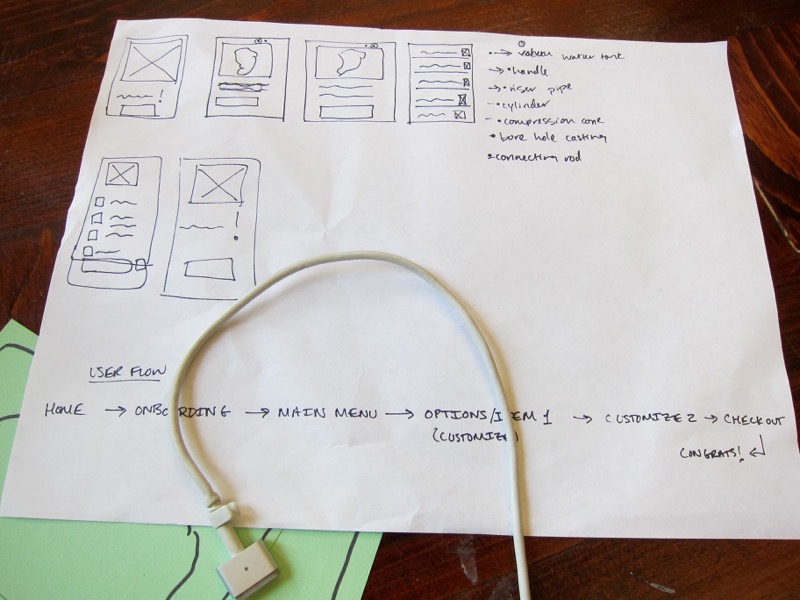 → water tank
→ • handle
→ • riser pipe
- • cylinder
- • compression cone
• bore hole casting
• connecting rod
USER FLOW
HOME → ONBOARDING → MAIN MENU → OPTIONS/ITEM 1 → CUSTOMIZE 2 → CHECKOUT
(CUSTOMIZE)
CONGRATS!